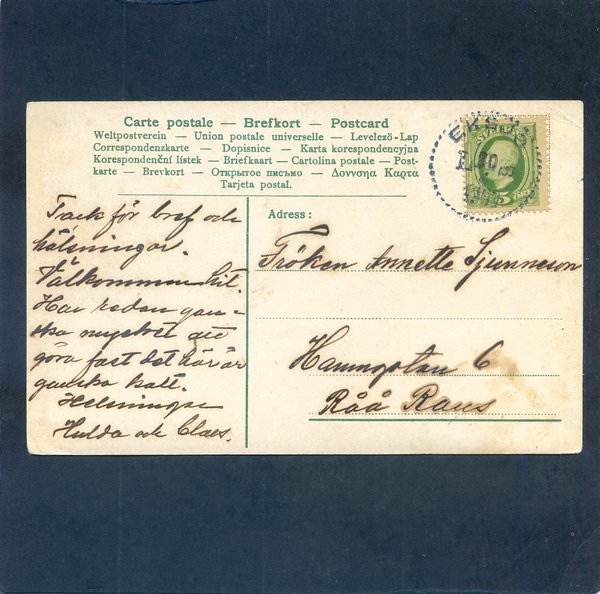 Carte postale — Brefkort — Postcard
Weltpostverein — Union postale universelle — Levelező-Lap
Correspondenzkarte — Dopisnice — Karta korespondencyjna
Korespondenční lístek — Briefkaart — Cartolina postale — Post-
karte — Brevkort — Открытое письмо — Δοννσηα Καρτα
Tarjeta postal.
EKSJÖ
5
Tack för bref och
hälsningar.
Välkommen hit.
Har redan gan-
ska mycket att
göra fast det här är
ganska kallt.
Helsningar
Hulda och Claes.
Adress:
Fröken Annette Sjunneson
Hamngatan 6
Råå Raus